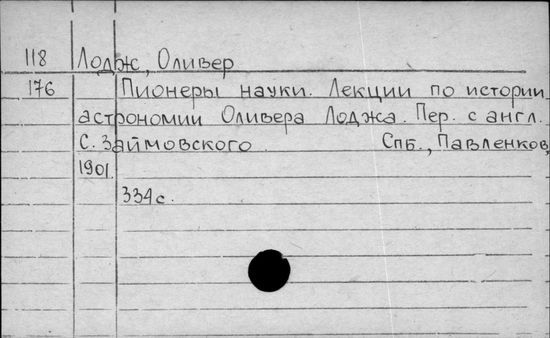 118 Лодж, Оливер
176 Пионеры науки. Лекции по истории
астрономии Оливера Лоджа. Пер. с англ.
С. Займовского. Спб., Павленков,
1901.
334 с.